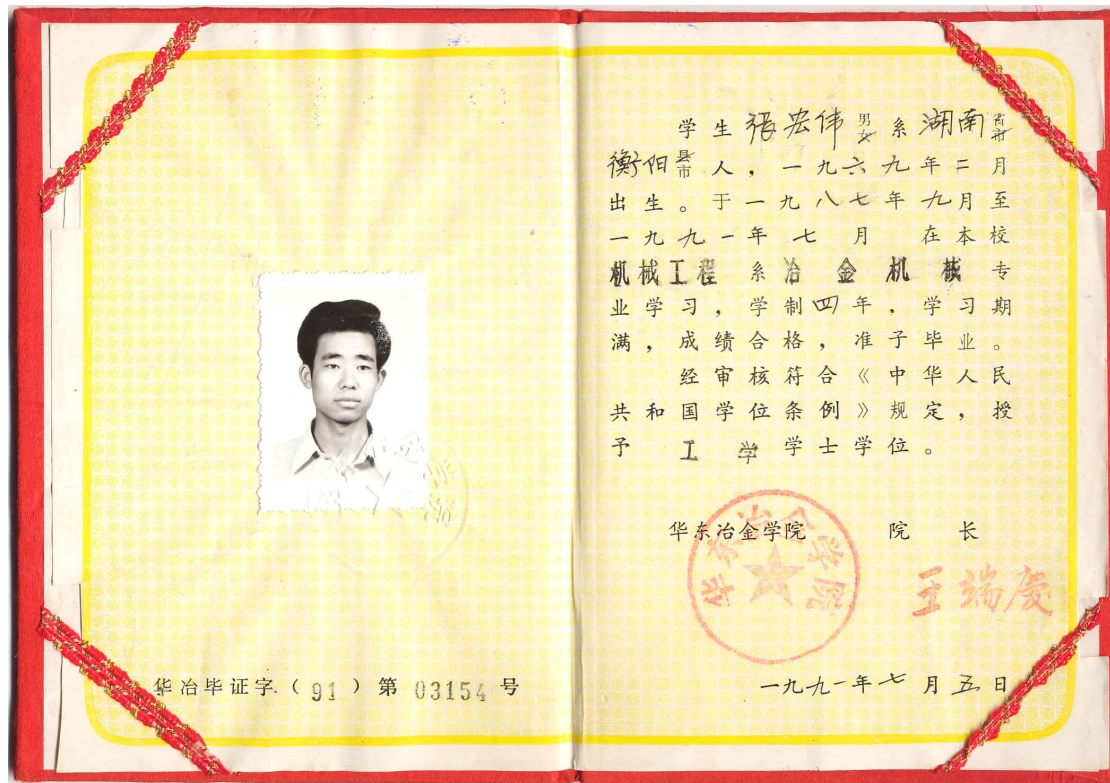 学生张宏伟男女系湖南省市
衡阳县市人，一九六九年二月
出生。于一九八七年九月至
一九九一年七月 在本校
机械工程系冶金机械专
业学习，学制四年，学习期
满，成绩合格，准予毕业。
经审核符合《中华人民
共和国学位条例》规定，授
予工学学士学位。
华东冶金学院 院长
华东冶金学院
王端庆
一九九一年七月五日
华冶毕证字（91）第 03154 号